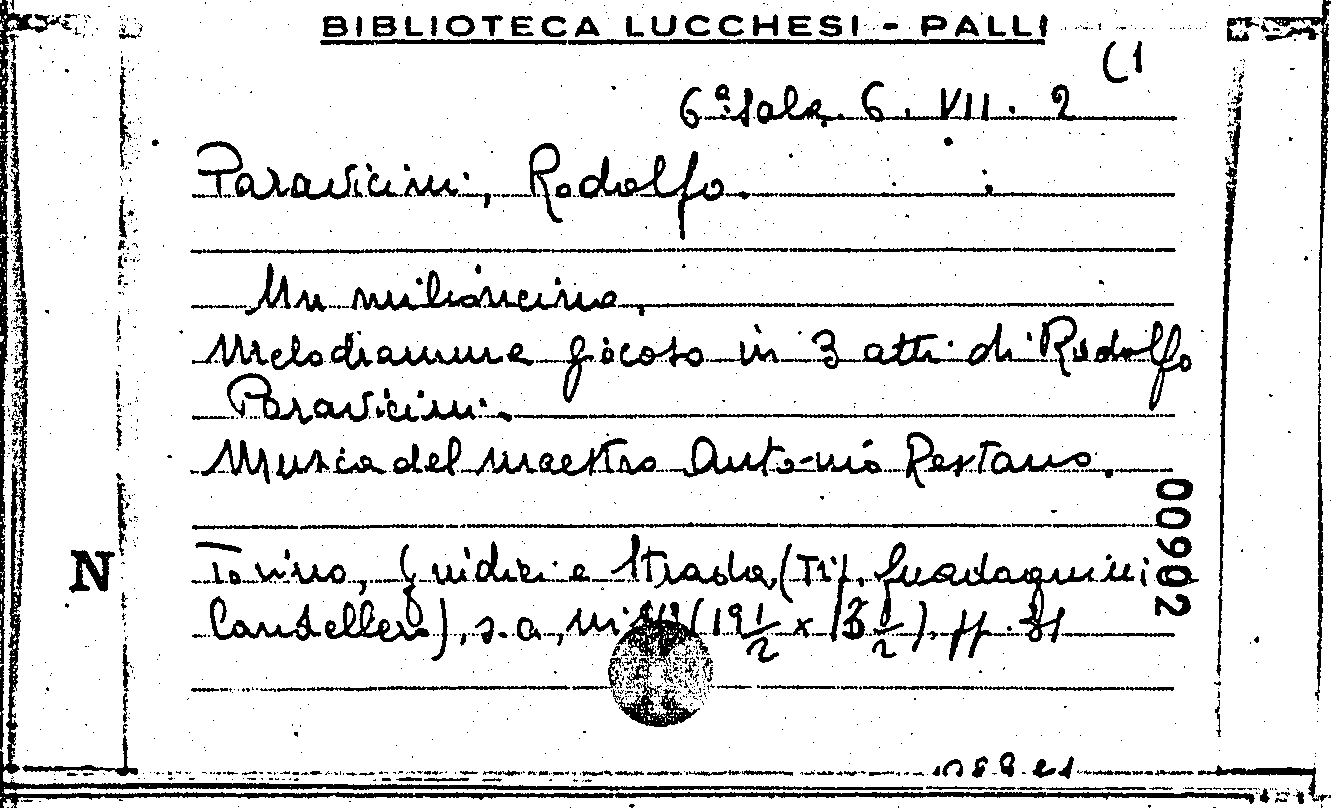 BIBLIOTECA LUCCHESI - PALLI
(1
6ª Sala. 6. VII. 2
Paravicini, Rodolfo.
Un milioncino.
Melodramma giocoso in 3 atti di Rodolfo
Paravicini.
Musica del maestro Antonio Restano.
00902
N
Torino, Giudici e Strada, (Tip. Guadagnini
Candellero), s.a., in (19 1/2 x 13 1/2). pp. 31